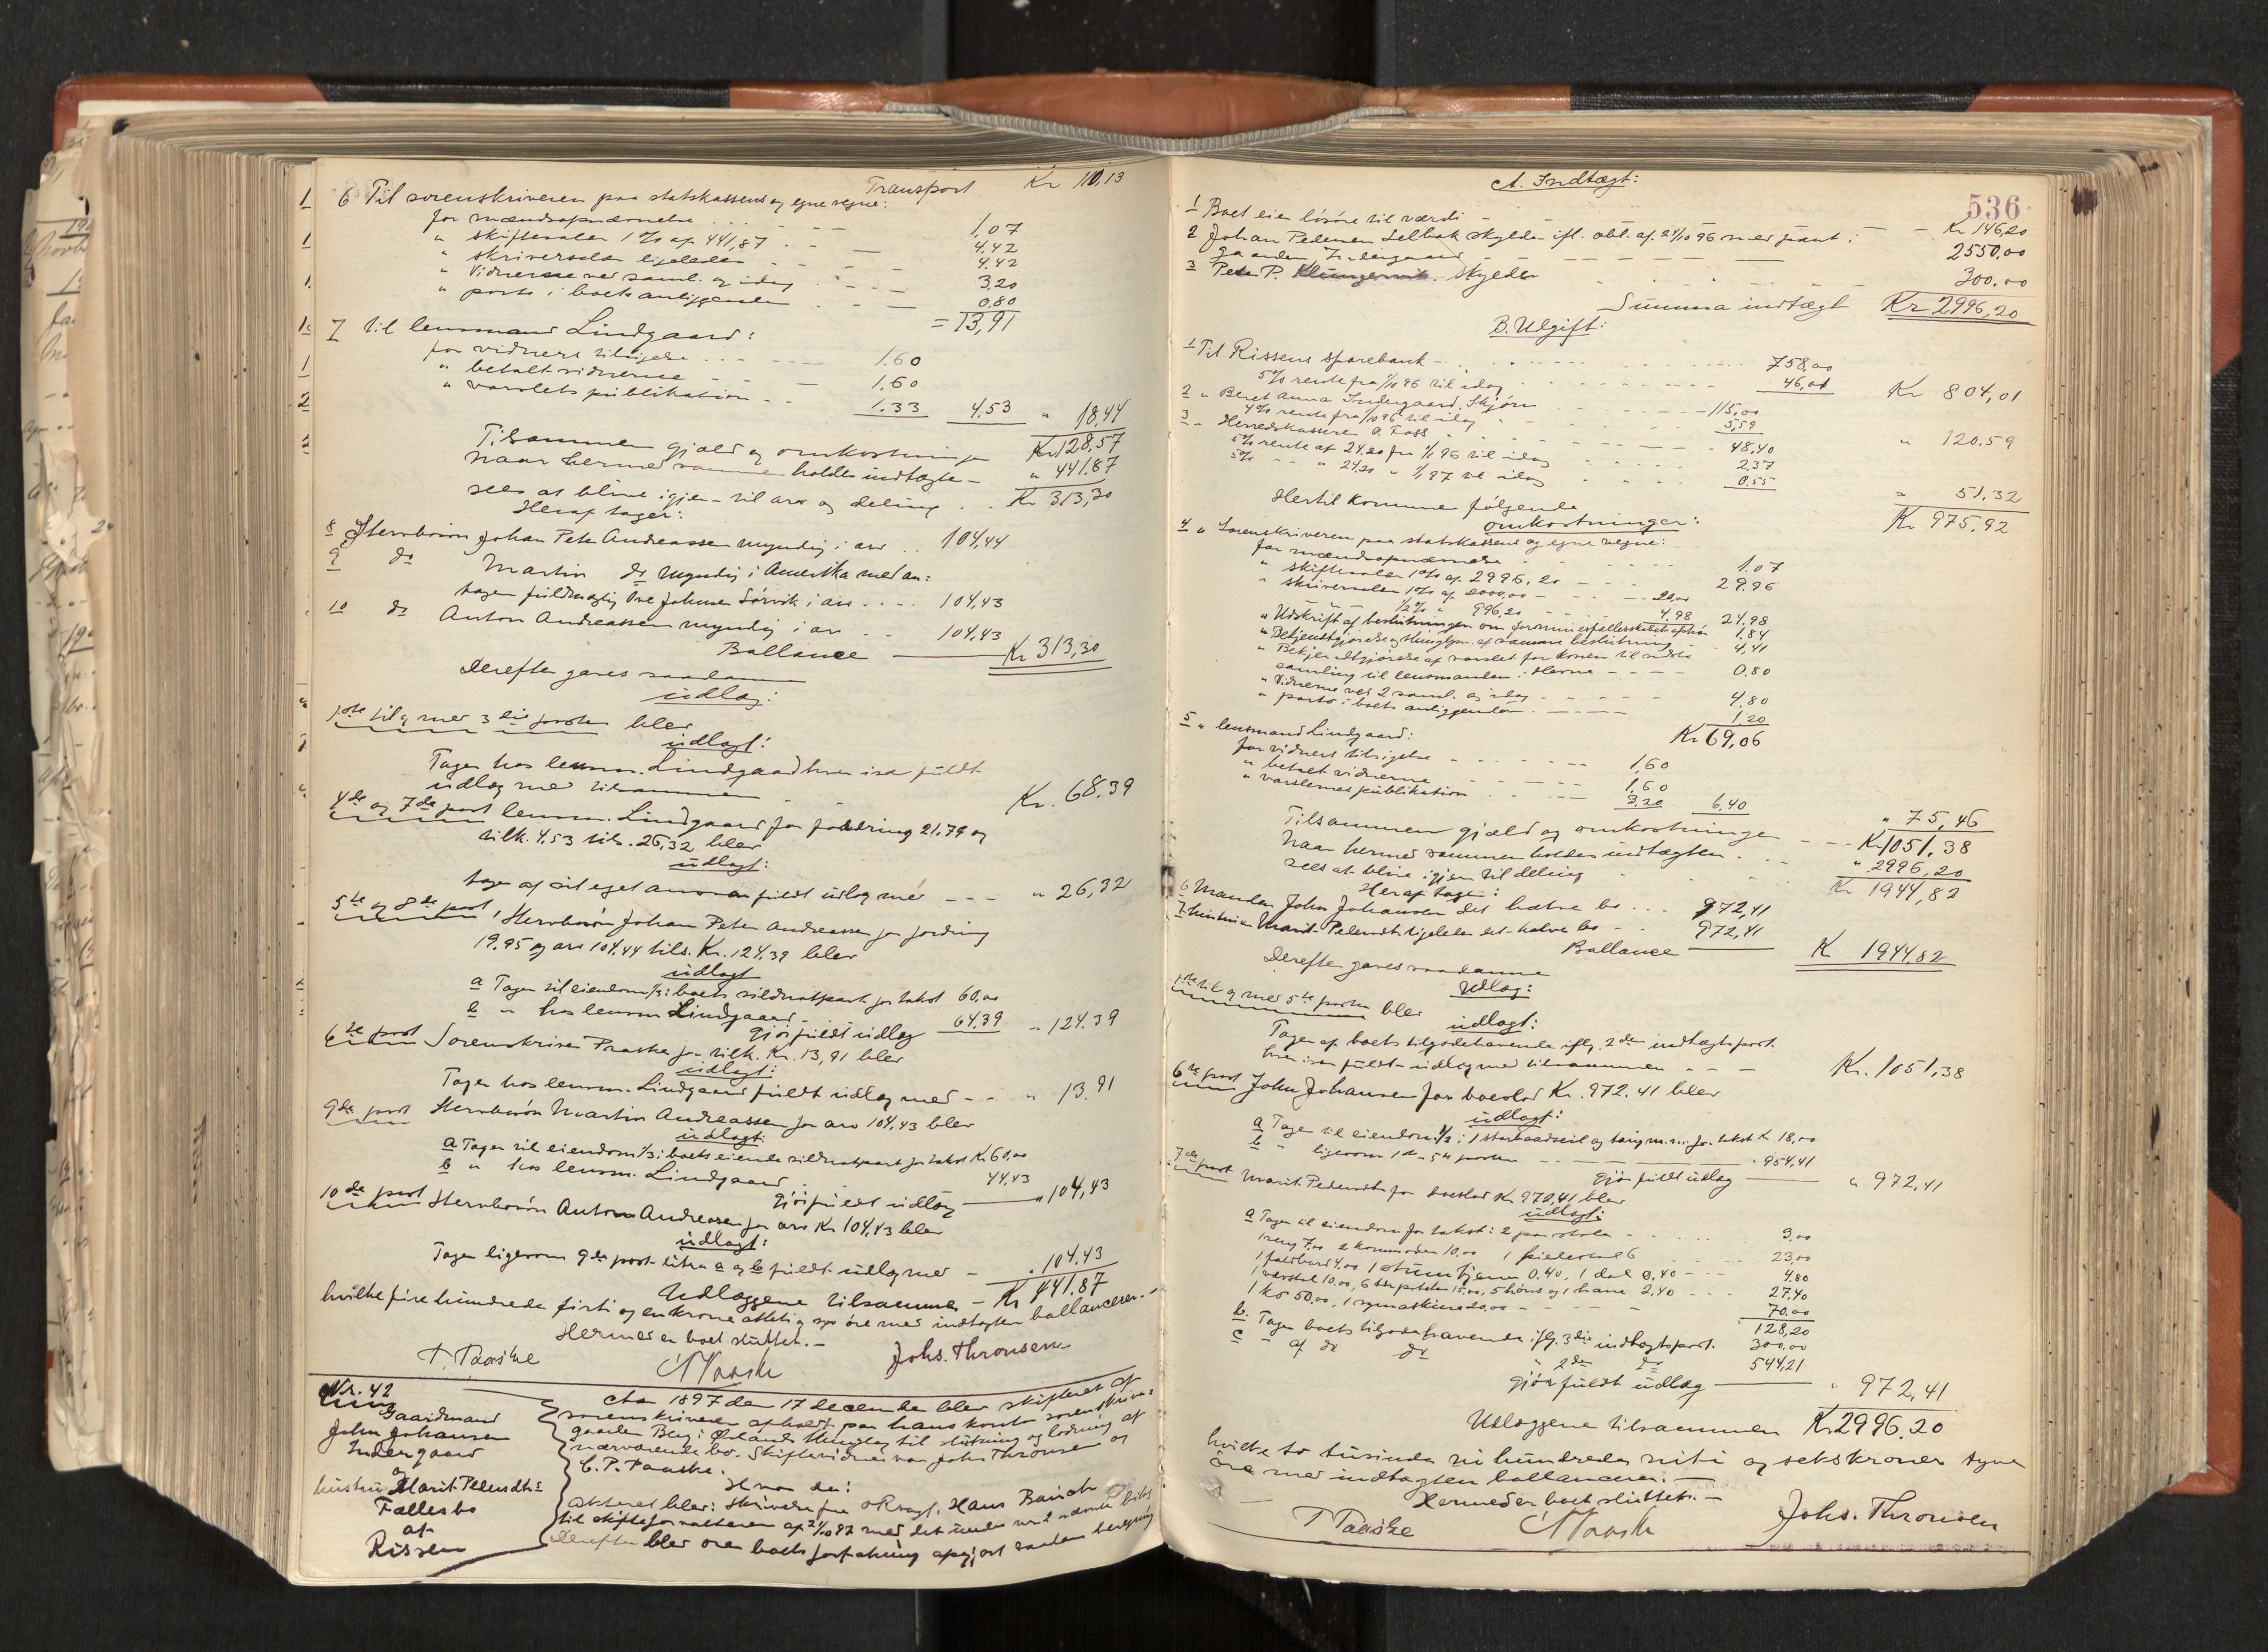 Transport Kr 110,13
6 Til sorenskriveren paa statskassens og egne vegne:
for mændsopnævnelse 1,07
" skiftesalær 1% af 441,87 4.42
" skriversalær ligeledes 4.42
" Vidnerne ved saml. og idag 3.20
" porto i boets anliggender 0.80
= 13,91
7 til lensmand Lindgaard:
for vidners tilsigelse 1.60
" betalt vidnerne 1,60
" varslets publikation 1.33 4.53 " 18,44
Tilsammen gjæld og omkostninger Kr 128,57
Naar hermed sammenholdes indtægten " 441.87
sees at blive igjen til arv og deling Kr 313,30
Heraf tager:
8 Johan Peter Andreassen myndig i arv 104,44
9 do Martin do myndig i Amerika med an=
tagen fuldmægtig Ove Johnsen Sørvik i arv 104,43
10 do Anton Andreassen myndig i arv 104,43
Ballance Kr 313,30
Derefter gøres saadanne
udlæg:
1ste til og med 3die poster blev
udlagt:
Tager hos lensm. Lindgaard hver især fuldt
udlæg med tilsammen Kr. 68.39
4de og 7de post lensm. Lindgaard for fordring 21.79 og
tilk. 4.53 tils. 26,32 blev
udlagt:
tager af sit eget ansvar fuldt udlæg med " 26,32
5te og 8de post, Johan Peter Andreassen for fordring
19.95 og arv 104,44 tils. Kr. 124.39 blev
udlagt
a Tager til eiendom 1/3 i boets sildnotpart for takst 60,00
b " hos lensm Lindgaard 64.39
gjør fuldt udlæg " 124.39
6te post Sorenskriver Paaske for tilk. Kr. 13,91 blev
udlagt:
Tager hos lensm. Lindgaard fuldt udlæg med " 13.91
9de post Martin Andreassen for arv 104,43 blev
udlagt:
a Tager til eiendom 1/3 i boets eiende sildnotpart for takst Kr 60,00
b " hos lensm. Lindgaard 44,43
gjør fuldt udlæg " 104,43
10de post Anton Andreassen for arv Kr 104,43 blev
udlagt:
Tager ligesom 9de post litra a og b fuldt udlæg med " 104.43
Udlæggene tilsammen Kr 441.87
hvilke fire hundrede firti og en krone otteti og syv øre med indtægten ballancerer.
Hermed er boet sluttet.
T. Paaske C Paaske Johs. Thronsen
Nr. 42
Gaardmand
John Johansen
Indergaard
og
hustru Marit Pedersdtrs
Fællesbo
af
Rissen
Aar 1897 den 17 december blev skifteret af
sorenskriveren afholdt paa hans kontor sorenskriver=
gaarden Berg i Ørlands thinglag til slutning og lodning af
nærværende bo. Skiftevidner var Johs Thronsen og
C. P. Paaske.
Hvor da:
Akteret blev: Skrivelse fra oRsagf. Hans Bauck
til skifteforvalteren af 21/10 97 med det under nr 2 nævnte bilag
Derefter blev over boets forfatning opgjort saadan beregning
536
A. Indtægt:
1 Boet eier løsøre til værdi Kr 146,20
2 Johan Pedersen Selbæk skylder ifl. obl. af 24/10 96 med pant i
gaarden Indergaard 2550,00
3 Peter P. Klungervik skylder 300.00
Summa indtægt Kr 2996,20
B. Udgift:
1 Til Rissens sparebank 758,00
5% rente fra 1/10 96 til idag 46,01 Kr 804,01
2 " Beret Anna Indergaard, Skjørn 115,00
4% rente fra 1/10 96 til idag 5,59 " 120.59
3 " Herredskasserer O. Foss 48,40
5% rente af 24.20 fra 1/1 96 til idag 2.37
5% " " 24.20 " 1/1 97 til idag 0.55 " 51.32
Hertil kommer følgende Kr 975,92
omkostninger:
4 " Sorenskriveren paa statskassens og egne vegne:
for mændsopnævnelse 1.07
" skiftesalær 1% af 2996,20 29.96
" skriversalær 1% af 2000,00 20,00
" " 1/2% " 996,20 4,98 24,98
" Udskrift af beslutningen om formuesfællesskabets ophør 1,84
" Bekjendtgjørelse og thinglysn. af samme beslutning 4,41
" Bekjendtgjørelse af varslet for konen til sidste
samling til lensmanden i Hevne 0.80
" Vidnerne ved 2 saml. og idag 4.80
" porto i boets anliggender 1.20
Kr 69,06
5 " lensmand Lindgaard:
for vidners tilsigelse 1,60
" betalt vidnerne 1,60
" varslernes publikation 3,20 6,40 " 75,46
Tilsammen gjæld og omkostninger Kr 1051,38
Naar hermed sammenholdes indtægten " 2996,20
sees at blive igjen til deling Kr 1944,82
Heraf tager:
6 Manden John Johansen det halve bo 972,41
7 hustruen Marit Pedersdtr ligeledes det halve bo 972,41
Ballance K 1944,82
Derefter gøres saadanne
Udlæg:
1ste til og med 5te poster blev
udlagt:
Tager af boets tilgodehavende iflg. 2den indtægtspost
hver især fuldt udlæg med tilsammen Kr. 1051,38
6te post John Johansen for boeslod Kr. 972.41 blev
udlagt:
a Tager til eiendom 1/2 i 1 storbaadseil og taug m.m. for takst Kr 18,00
b " ligesom 1ste - 5te poster 954,41
gjør fuldt udlæg " 972,41
7de post Marit Pedersdtr for boeslod Kr 972,41 blev
udlagt:
a Tager til eiendom for takst: 2 par stole 3,00
1 seng 7,00 2 kommoder 10,00 1 6 23,00
1 foldbord 4.00 1 0.40, 1 dal 0,40 4.80
1 vævstol 10.00, 6 tdr poteter 15,00, 5 høns og 1 hane 2,40 27,40
1 ko 50.00, 1 symaskine 20,00 70.00
128,20
b. Tager boets tilgodehavende iflg. 3die indtægtspost. 300,00
c " af do do " 2den do 544,21
gjør fuldt udlæg " 972,41
Udlæggene tilsammen Kr 2996.20
hvilke to tusinde ni hundrede niti og seks kroner tyve
øre med indtægten ballancerer.
Hermed er boet sluttet.
T Paaske C Paaske Johs. Thronsen